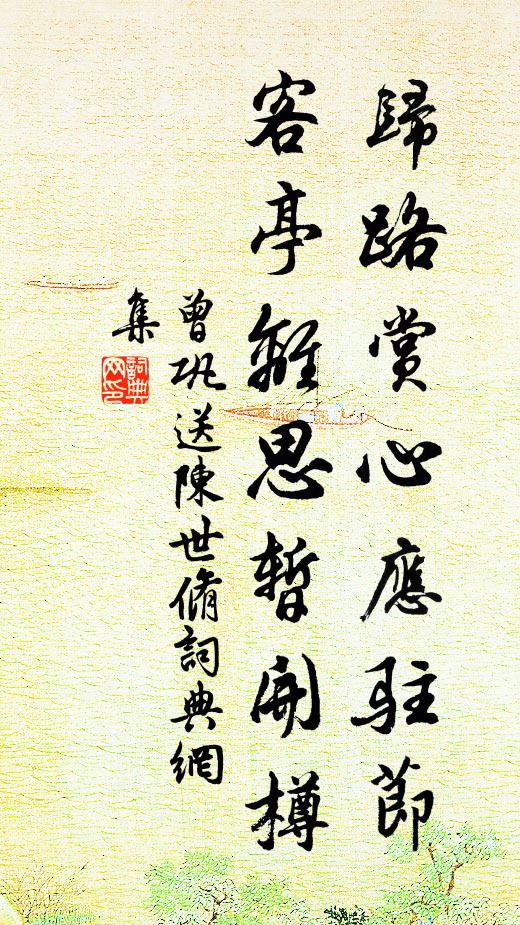 歸路賞心應駐節
客亭離思暫開樽
曾鞏送陳世脩詞典網
集
詞典網印